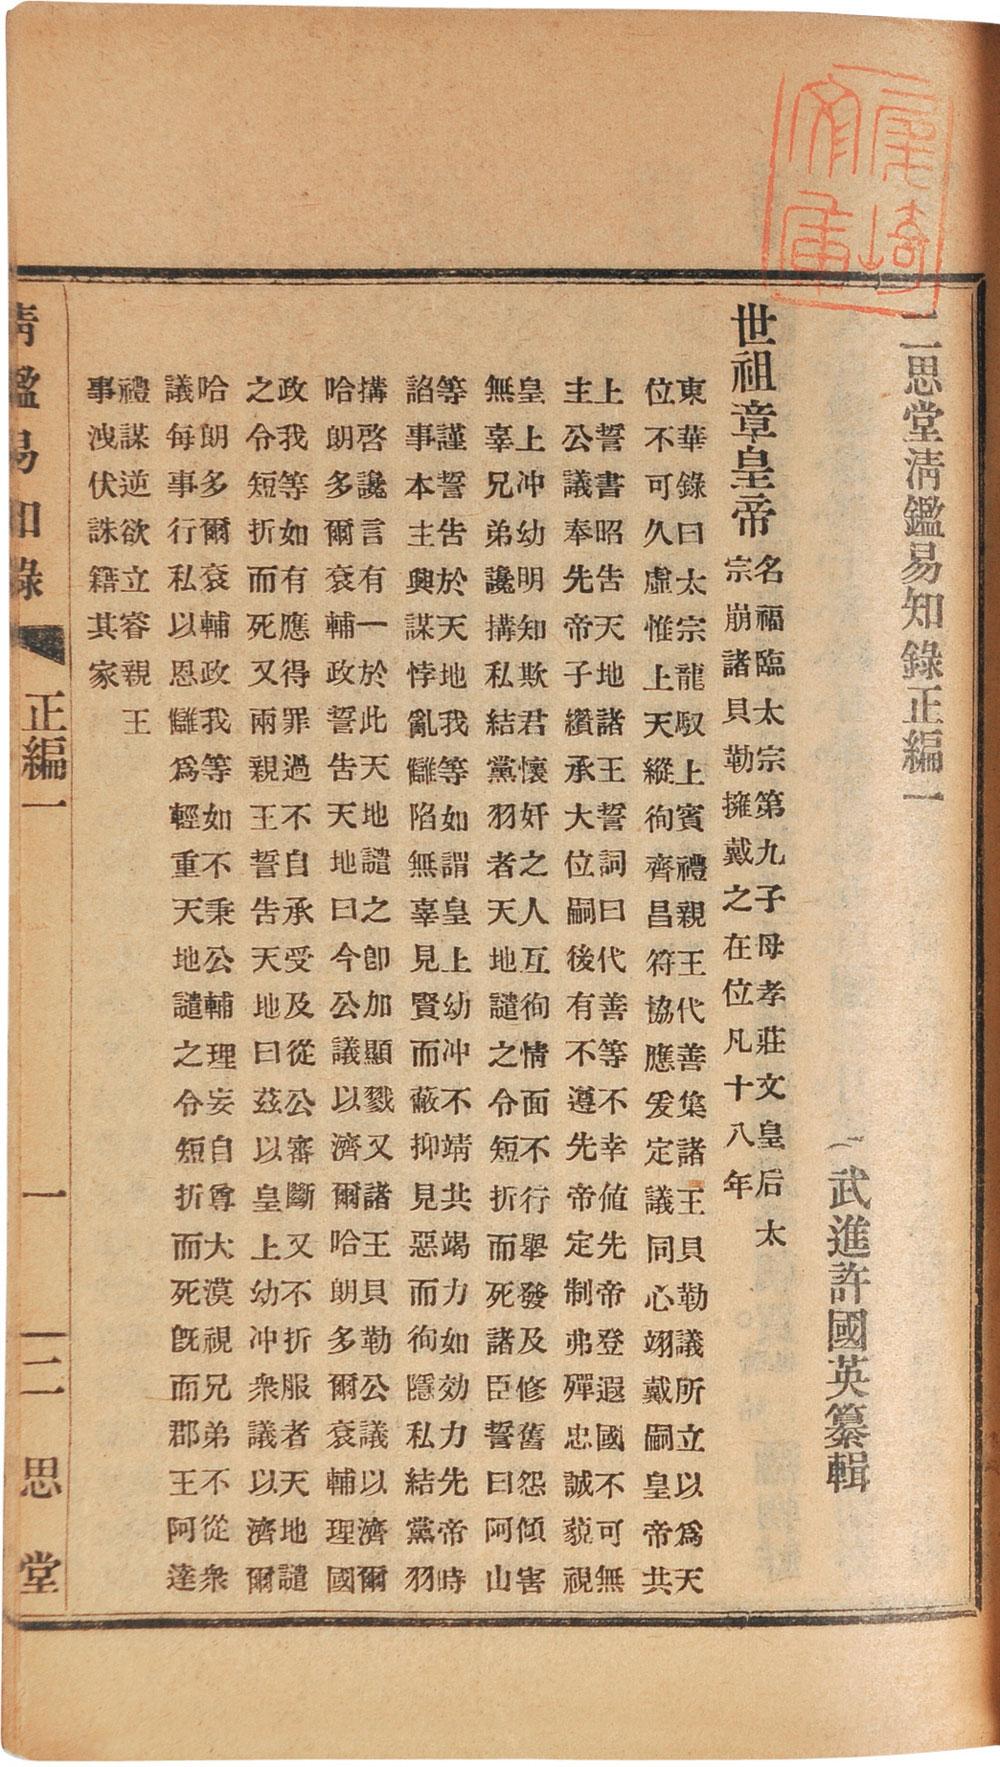 二思堂清鑑易知錄正編一
武進許國英纂輯
世祖章皇帝
名福臨太宗第九子母孝莊文皇后太
宗崩諸貝勒擁戴之在位凡十八年
東華錄曰太宗龍馭上賓禮親王代善集諸王貝勒議所立以爲天
位不可久虛惟上天縱徇齊昌符協應爰定議同心翊戴嗣皇帝共
上誓書昭告天地諸王誓詞曰代善等不幸値先帝登遐國不可無
主公議奉先帝子纘承大位嗣後有不遵先帝定制弗殫忠誠藐視
皇上冲幼明知欺君懷奸之人互徇情面不行舉發及修舊怨傾害
無辜兄弟讒搆私結黨羽者天地譴之令短折而死諸臣誓曰阿山
等謹誓告於天地我等如謂皇上幼冲不靖共竭力如効力先帝時
諂事本主興謀悖亂讎陷無辜見賢而蔽抑見惡而徇隱私結黨羽
搆啓讒言有一於此天地譴之卽加顯戮又諸王貝勒公議以濟爾
哈朗多爾袞輔政誓告天地曰今公議以濟爾哈朗多爾袞輔理國
政我等如有應得罪過不自承受及從公審斷又不折服者天地譴
之令短折而死又兩親王誓告天地曰茲以皇上幼冲衆議以濟爾
哈朗多爾袞輔政我等如不秉公輔理妄自尊大漠視兄弟不從衆
議每事行私以恩讎爲輕重天地譴之令短折而死旣而郡王阿達
禮謀逆欲立睿親王
事洩伏誅籍其家
清鑑易知錄 正編一 一 二思堂